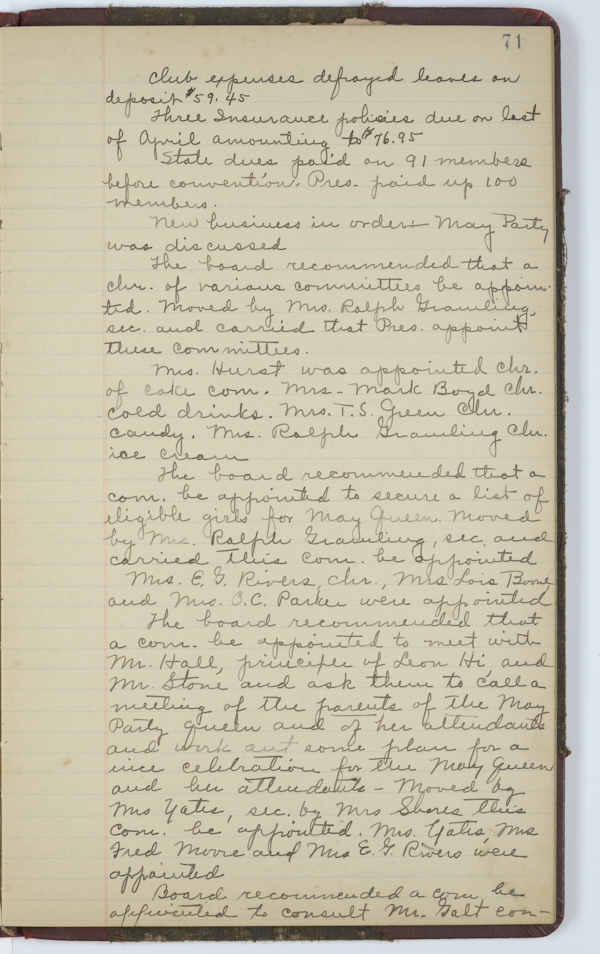 71
Club expenses defrayed leaves on
deposit $59.45
Three Insurance policies due on last
of April amounting to $76.95
State dues paid on 91 members
before convention. Pres. paid up 100
members.
New business in order - May Party
was discussed
The board recommended that a
chr. of various committees be appoin-
ted. Moved by Mrs. Ralph Gramling,
sec. and carried that Pres. appoint
these committies.
Mrs. Hurst was appointed Chr.
of cake com. Mrs - Mark Boyd Chr.
cold drinks. Mrs. T.S. Green Chr.
candy. Mrs. Ralph Gramling Chr.
ice cream
The board recommended that a
com. be appointed to secure a list of
eligible girls for May Queen. Moved
by Mrs. Ralph Gramling, sec. and
carried this com. be appointed
Mrs. E.G. Rivers, chr., Mrs Lois
and Mrs. O.C. Parker were appointed
The board recommended that
a com. be appointed to meet with
Mr. Hall, of Leon Hi, and
Mr. Stone and ask them to call a
meeting of the parents of the May
Party queen and of her attendants
and work out some plan for a
nice celebration for the May Queen
and her attendants - Moved by
Mrs Yates, sec. by Mrs this
Com. be appointed. Mrs. Yates, Mrs
Fred Moore and Mrs E.G. Rivers were
appointed
Board recommended a com be
appointed to consult Mr. Galt con-